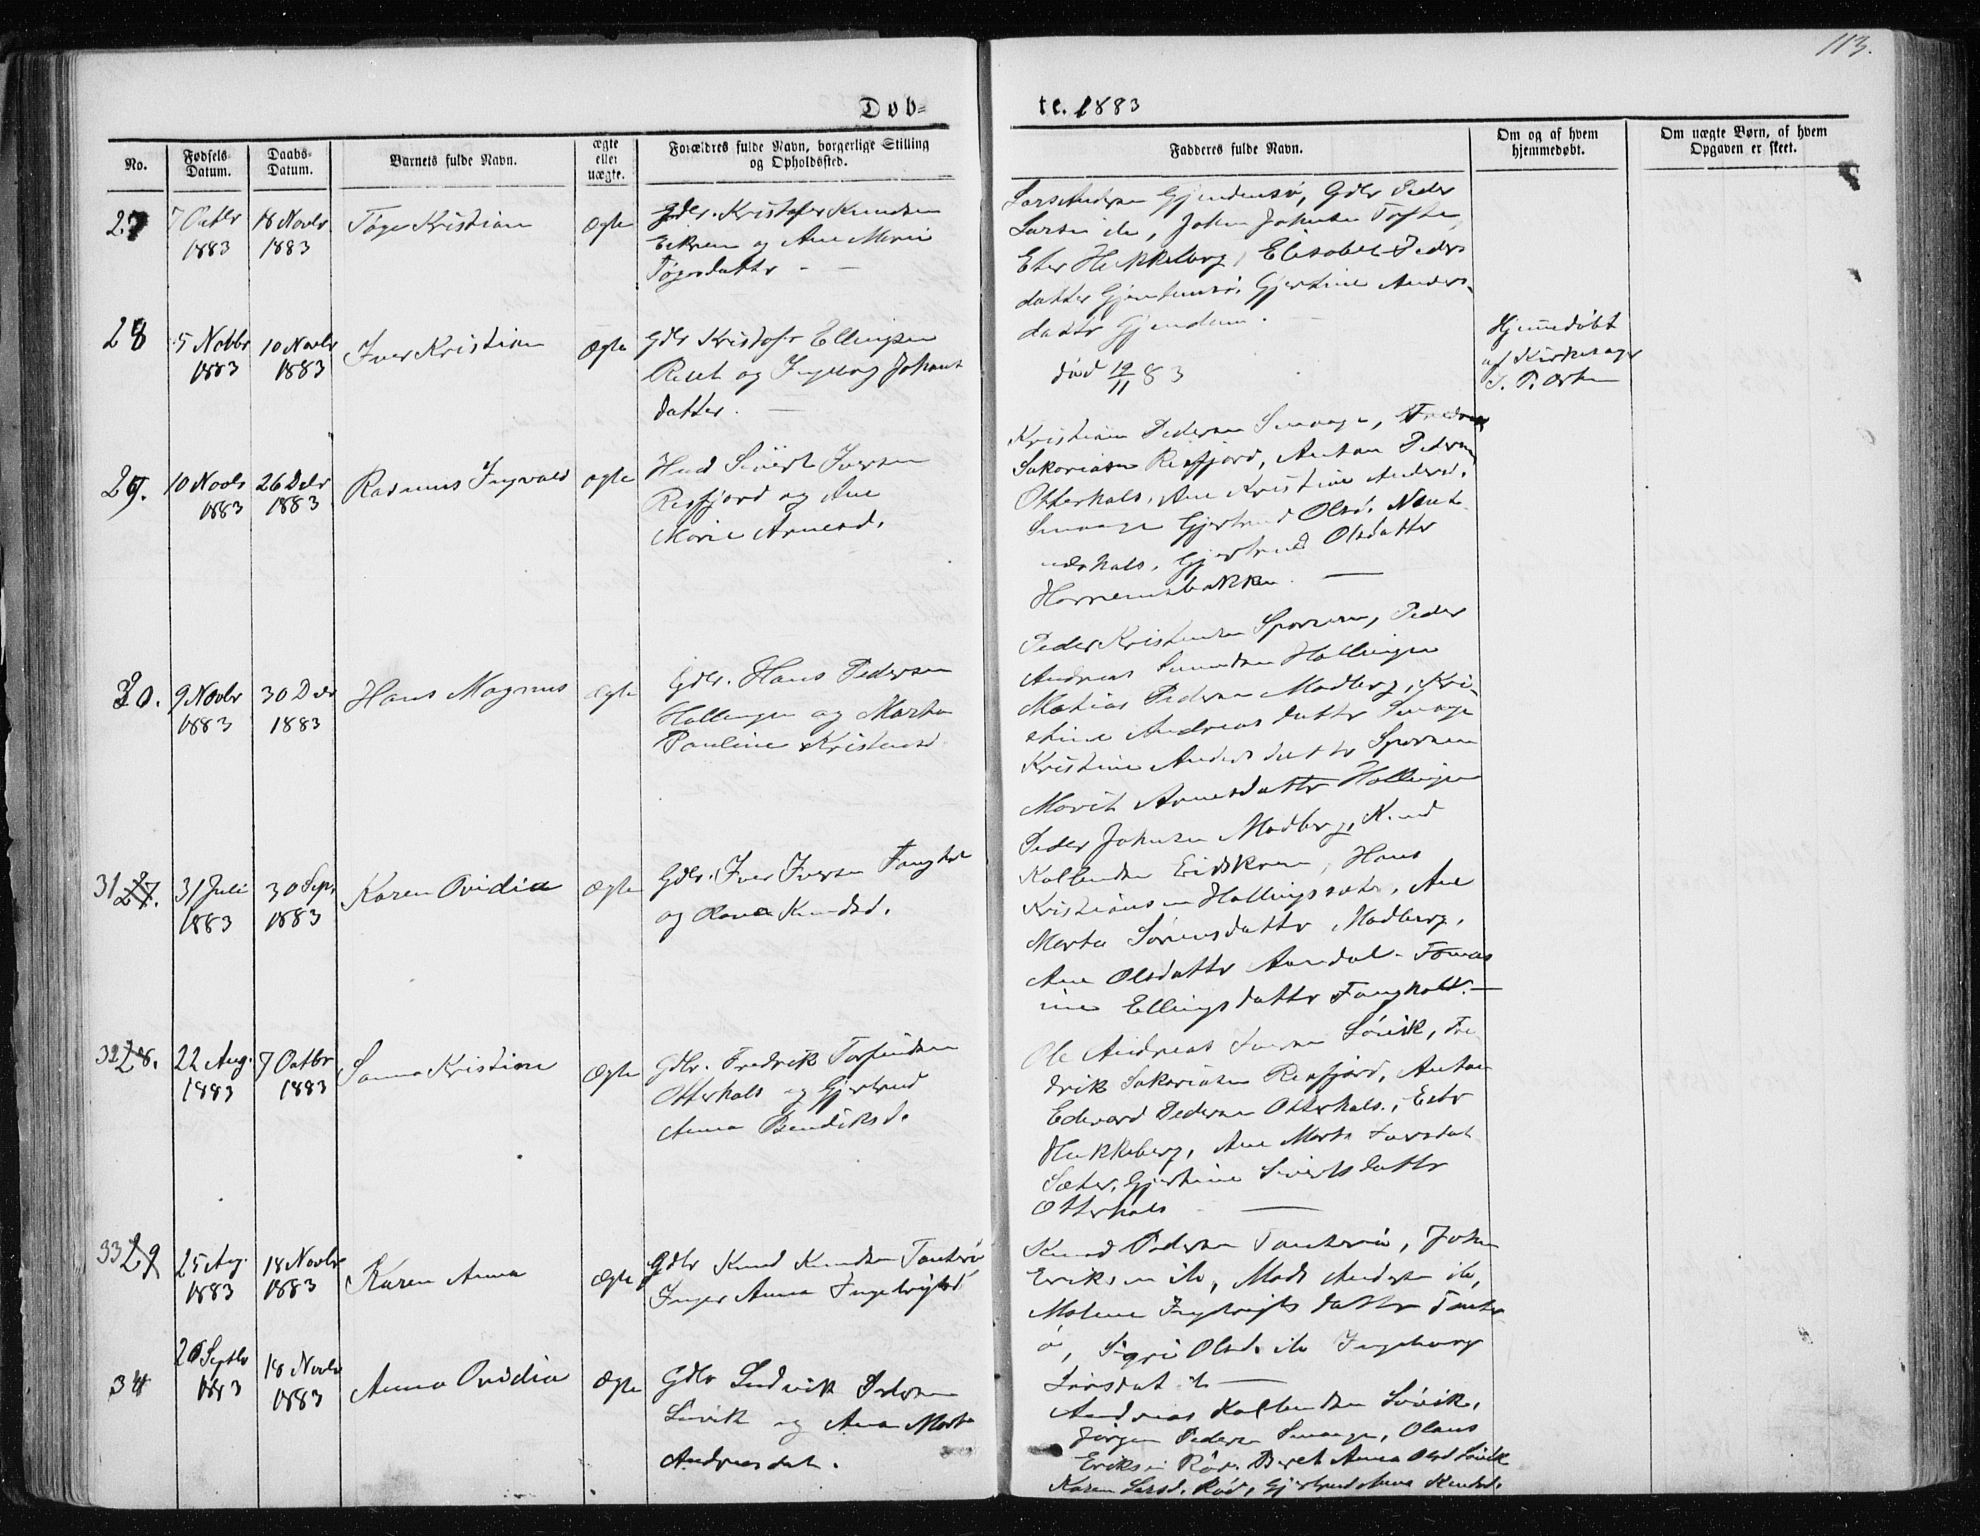 113.
Døb=
te. 1883
No.
Fødsels-
Datum.
Daabs-
Datum.
Barnets fulde Navn.
ægte
eller
uægte.
Forældres fulde Navn, borgerlige Stilling
og Opholdssted.
Fadderes fulde Navn.
Om og af hvem
hjemmedøbt.
Om uægte Børn, af hvem
Opgaven er skeet.
27
7 Octbr
1883
18 Novbr
1883
Tøger Kristian
Ægte
Gdbr. Kristofer Knudsen
Eikrem og Ane Marie
Tøgersdatter -
Lars Andersen Gjendemsø, Gdbr Peder
Larsen ib, Johan Johnsen Tofte
Ester Hukkelberg, Elisabet Peders
datter Gjendemsø, Gjertine Anders-
datter Gjendem. -
28
5 Novbr
1883
10 Novbr
1883
Iver Kristian
Ægte
Gdbr Kristofer Ellingsen
og Ingeborg Johans
datter. -
død 19/11 83
Hjemmedøbt
af Kirkesanger
29.
10 Novbr
1883
26 Dcbr
1883
Rasmus Ingvald
ægte
Sivert Iversen
Resfjord og Ane
Marie Arnesd.
Kristian Pedersen Smaage,
Sakariasen Resfjord, Anton Pedersen
Otterhals, Ane Kristine Andersd.
Smaage Gjertrud Olsd.
Gjertrud Olsdatter
30.
9 Novbr
1883
30 Dcbr
1883
Hans Magnus
Ægte
Gdbr. Hans Pedersen
Hollingen og Marta
Pauline Kristensd.
Peder Kristensen Sporsem, Peder
Andreas Hollingen
Matias Pedersen Madberg, Kri-
stine Andreasdatter Smage
Kristine Andersdatter Sporsem
Marit Arnesdatter Hollingen
31 27.
31 Juli
1883
30 Sept.
1883
Karen Ovidia
Ægte
Gdbr. Iver Iversen Fanghol
og Olava Knudsd.
Peder Johnsen Madberg, Knud
Kolbendsen Eidskrem, Hans
Kristiansen Hollingsæter, Ane
Marta Sørensdatter Madberg,
Ane Olsdatter Aandal. Tomas
ine Ellingsdatter Fangholt. -
32 28.
22 Aug.
1883
7 Octbr
1883
Sanna Kristine
Ægte
Gdbr. Fredrik Torfindsen
Otterhals og Gjertrud
Anna Bendiksd.
Ole Andreas Iversen Søvik, Fre-
drik Sakariasen Resfjord, Anton
Edevard Pedersen Otterhals, Ester
Hukkelberg, Ane Marta Iversdat
Sæter, Gjertine Sivertsdatter
Otterhals -
33 29
25 Aug.
1883
18 Novbr
1883
Karen Anna
Ægte
Gdbr Knud Knudsen Tanterø
Inger Anna Ingebrigtsd
Knud Pedersen Tanterø, John
Eriksen ib, Mads Andersen ib,
Malene Ingebrigtsdatter Tanter
ø, Sigri Olsd. ib Ingeborg
Larsdat ib -
34
26 Septbr
1883
18 Novbr
1883
Anna Ovidia
Ægte
Gdbr Ludvik Pedersen
Søvik og Ane Marta
Andreasdat.
Andreas Kolbendsen Søvik,
Jørgen Pedersen Smaage, Olaus
Eriksen Rød. Beret Anna Olsd Søvik
Karen Larsd. Rød, Gjertrud Anne Knudsd.